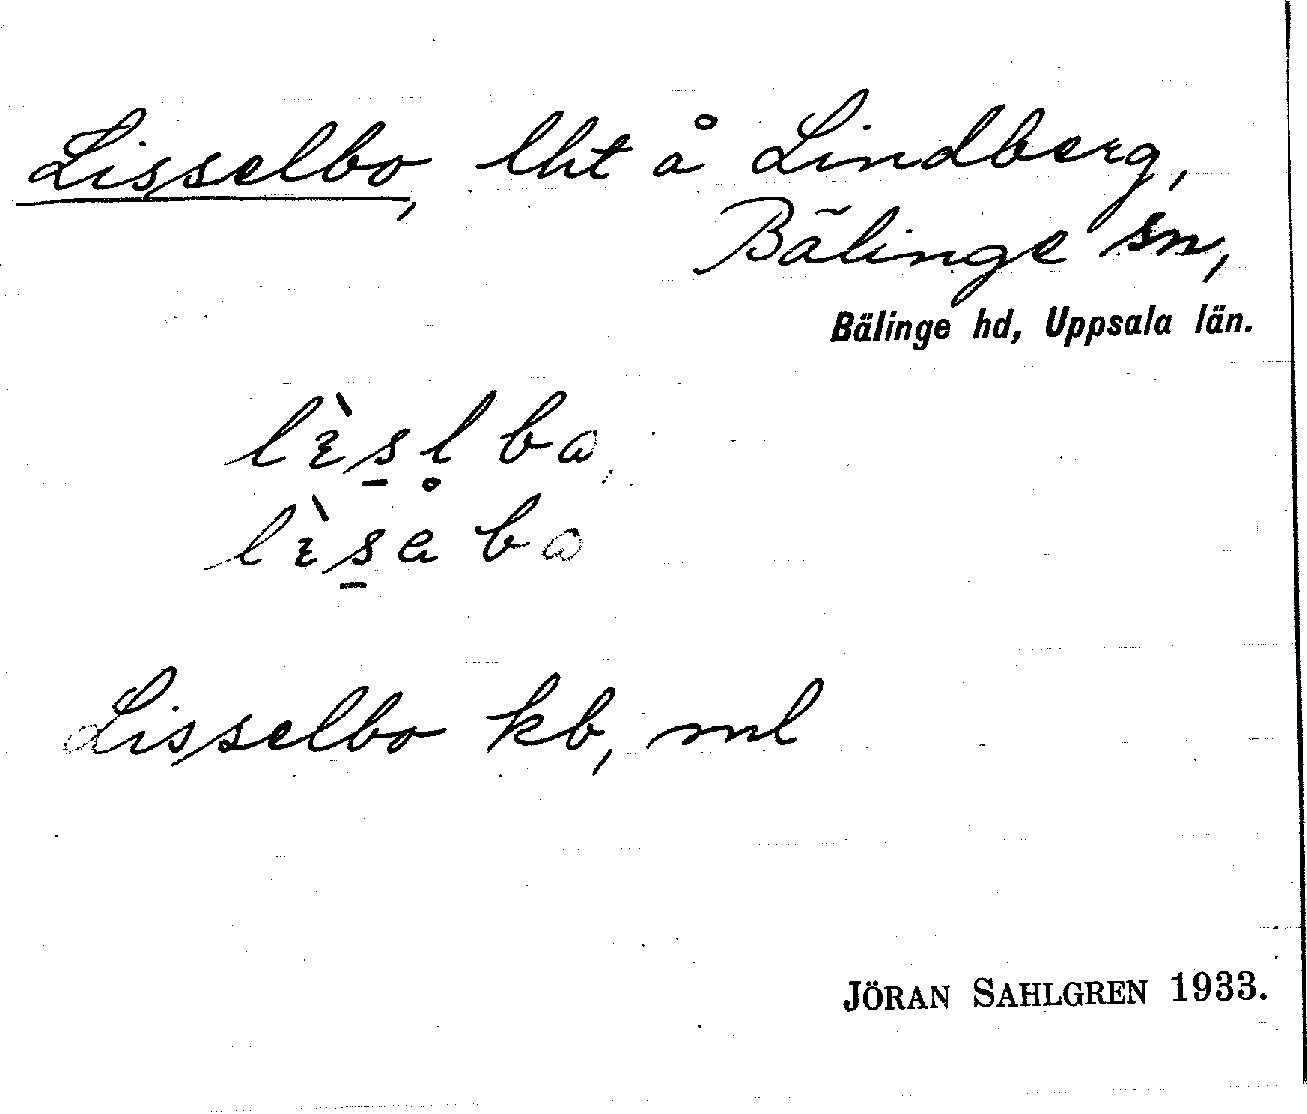 Lisselbo, lht å Lindberg,
Bälinge sn,
Bälinge hd, Uppsala län.
Lisselbo kb, ml
JÖRAN SAHLGREN 1933.